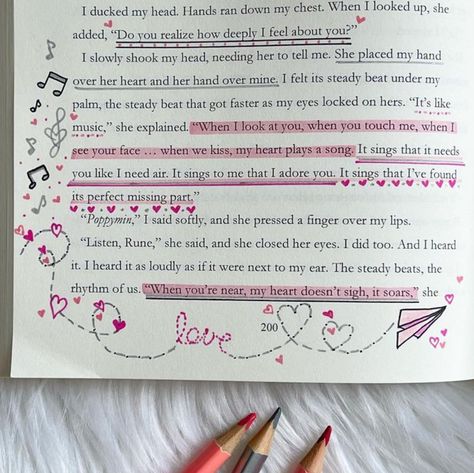 I ducked my head. Hands ran down my chest. When I looked up, she
added, “Do you realize how deeply I feel about you?”
I slowly shook my head, needing her to tell me. She placed my hand
over her heart and her hand over mine. I felt its steady beat under my
palm, the steady beat that got faster as my eyes locked on hers. “It’s like
music,” she explained. “When I look at you, when you touch me, when I
see your face … when we kiss, my heart plays a song. It sings that it needs
you like I need air. It sings to me that I adore you. It sings that I’ve found
its perfect missing part.”
“Poppymin,” I said softly, and she pressed a finger over my lips.
“Listen, Rune,” she said, and she closed her eyes. I did too. And I heard
it. I heard it as loudly as if it were next to my ear. The steady beats, the
rhythm of us. “When you’re near, my heart doesn’t sigh, it soars,” she
love
200